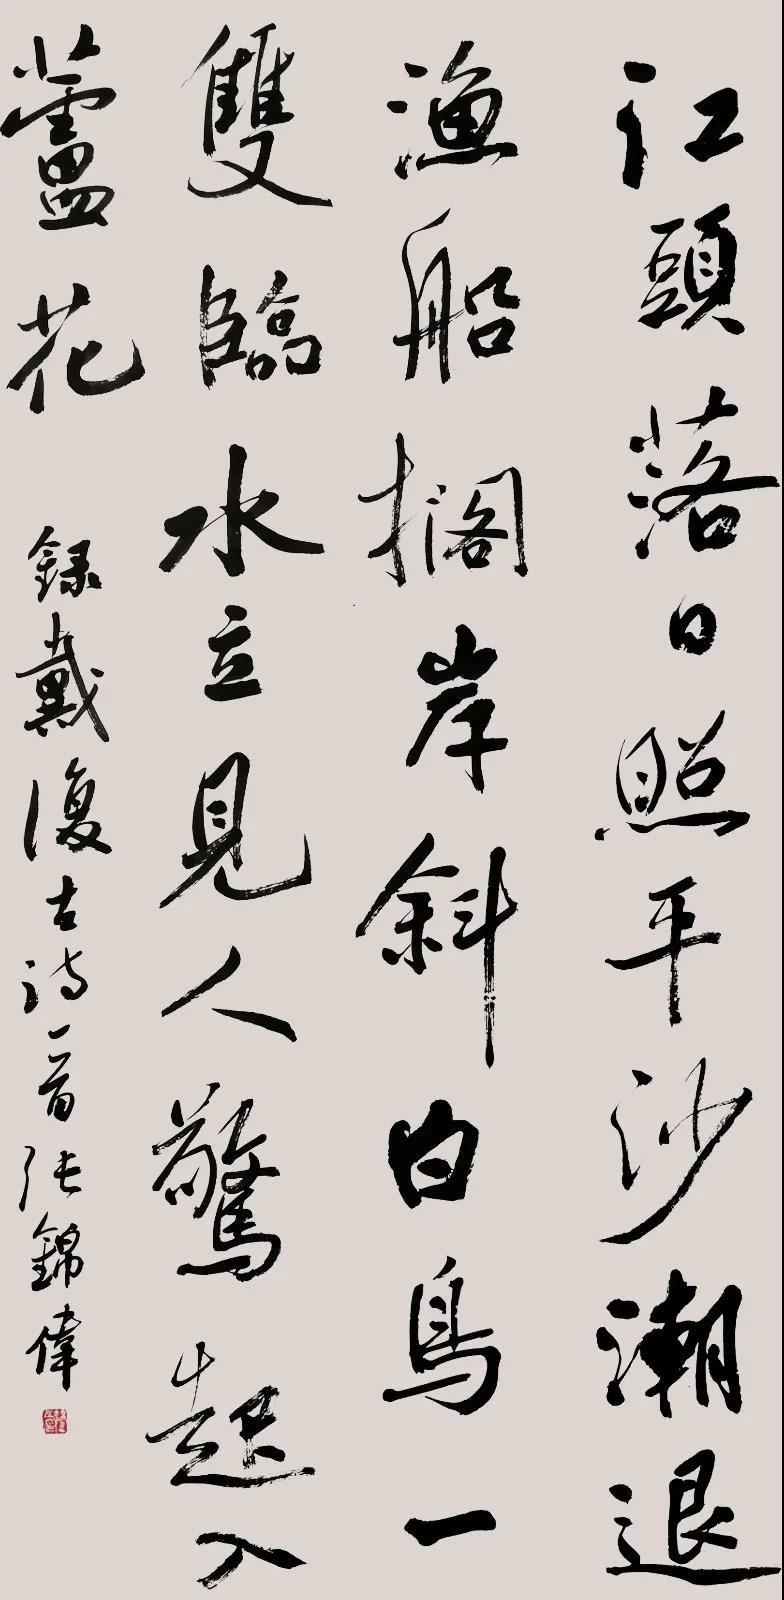 江頭落日照平沙潮退
漁船擱岸斜白鳥一
雙臨水立見人驚起入
蘆花
錄戴復古詩一首張錦偉